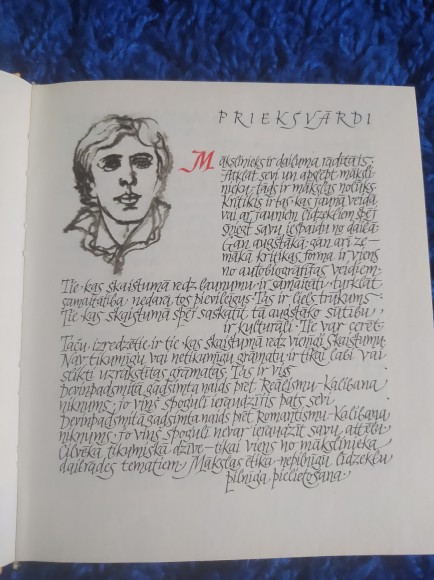 PRIEKŠVĀRDI
Mākslinieks ir daiļuma radītājs.
Atklāt sevi un apslēpt māksli-
nieku, tāds ir mākslas nolūks.
Kritiķis ir tas, kas jaunā veidā
vai ar jauniem līdzekļiem spēj
sniegt savu iespaidu no daiļā.
Gan augstākā, gan arī ze-
mākā kritikas forma ir viens
no autobiogrāfijas veidiem.
Tie, kas skaistumā redz ļaunumu, ir samaitāti, turklāt
samaitātība nedara tos pievilcīgus. Tas ir liels trūkums.
Tie, kas skaistumā spēj saskatīt tā augstāko sūtību,
ir kulturāli. Tie var cerēt.
Taču izredzētie ir tie, kas skaistumā redz vienīgi Skaistumu.
Nav tikumīgu vai netikumīgu grāmatu, ir tikai labi vai
slikti uzrakstītas grāmatas. Tas ir viss.
Deviņpadsmitā gadsimta naids pret Reālismu - Kalibana
niknums, jo viņš spogulī ieraudzījis pats sevi.
Deviņpadsmitā gadsimta naids pret Romantismu - Kalibana
niknums, jo viņš spogulī nevar ieraudzīt savu attēlu.
Cilvēka tikumiskā dzīve - tikai viens no mākslinieka
daiļrades tematiem. Mākslas ētika - nepilnīgu līdzekļu
pilnīga pielietošana.